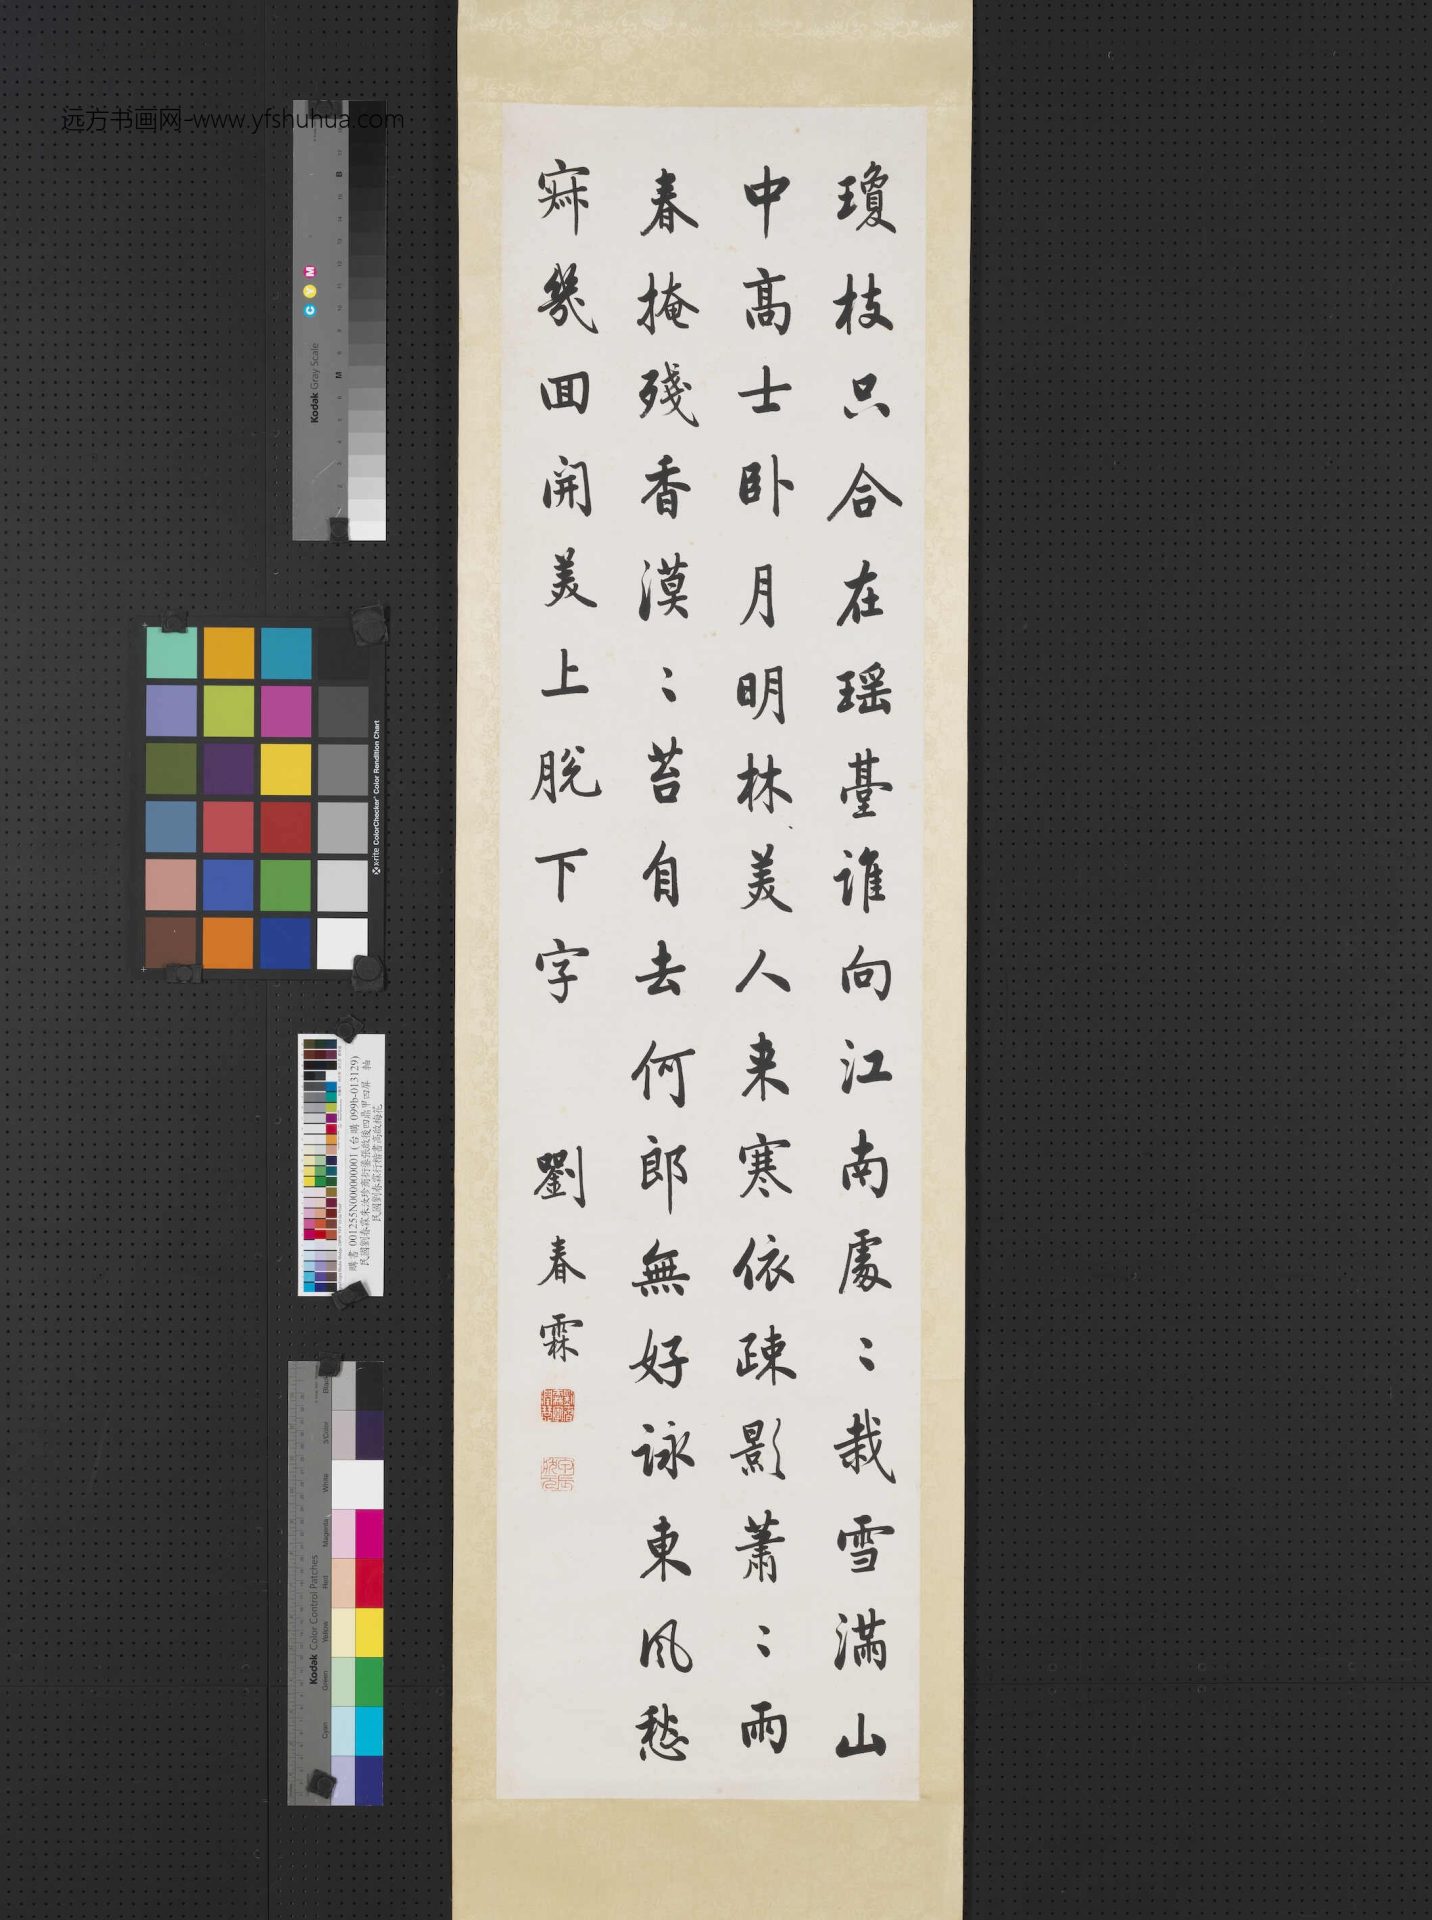 瓊枝只合在瑶臺誰向江南處〻栽雪滿山
中髙士卧月明林美人来寒依疎影蕭〻雨
春掩殘香漠〻苔自去何郎無好詠東風愁
寂幾回開美上脫下字 劉春霖
远方书画网-www.yfshuhua.com
Kodak Gray Scale
C Y M
B
M
x-rite ColorChecker Color Rendition Chart
購書 001255N000000001 (台購 099b-013129)
Kodak Color Control Patches
Black
3/Color
White
Magenta
Red
Yellow
Green
Cyan